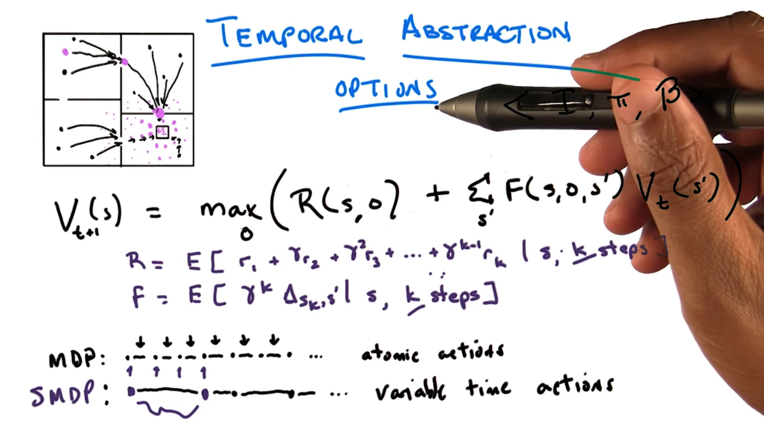 TEMPORAL ABSTRACTION
OPTIONS < I, π, β >
V_{t+1}(s) = max_o ( R(s,o) + Σ_{s'} F(s,o,s') V_t(s') )
R = E[ r_1 + γr_2 + γ²r_3 + ... + γ^{k-1} r_k | s, k steps ]
F = E[ γ^k Δ_{s_k,s'} | s, k steps ]
MDP: ... atomic actions
SMDP: ... variable time actions